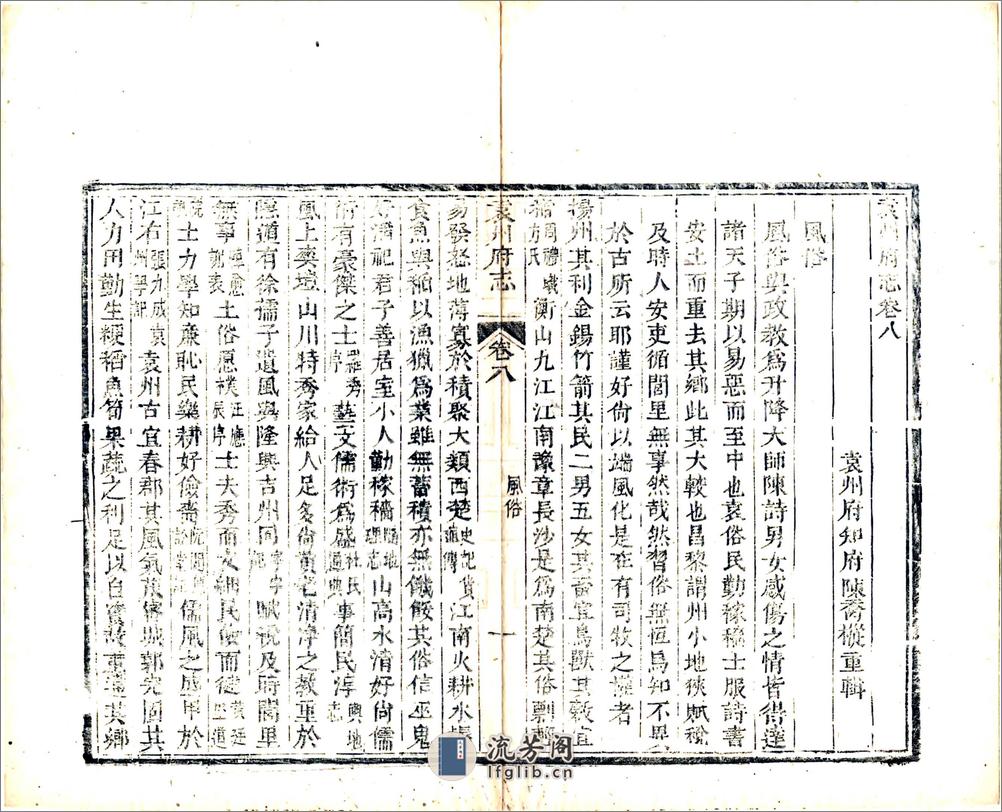 袁州府志卷八
袁州府知府陳喬樅重輯
風俗
風俗與政教為升降大師陳詩男女感傷之情皆得達
諸天子期以易惡而至中也袁俗民勤稼穡士服詩書
安土而重去其鄉此其大較也昌黎謂州小地狹賦稅
及時人安吏循閭里無事然哉然習俗無恆烏知不異
於古所云耶謹好尚以端風化是在有司牧之權者
揚州其利金錫竹箭其民二男五女其畜宜鳥獸其穀宜
稻周禮職方氏衡山九江江南豫章長沙是為南楚其俗剽輕
易發怒地薄寡於積聚大類西楚史記貨殖傳江南火耕水耨
食魚與稻以漁獵為業雖無蓄積亦無饑餒其俗信巫鬼
好淫祀君子善居室小人勤稼穡隋地理志山高水清好尚儒
術有豪傑之士序藝文儒術為盛杜氏通典事簡民淳輿地志
風上奕塏山川特秀家給人足多尚黃老清淨之教重於
隱遁有徐孺子遺風與隆興吉州同賦稅及時閭里
無事韓愈謝表土俗愿樸汪應辰序士夫秀而文細民險而健黃庭堅
士力學知廉恥民樂耕好儉嗇儒風之盛甲於
江右張九成袁州學記袁州古宜春郡其風氣城郭完固其
人力田勤生粳稻魚筍果蔬之利足以自其鄉
袁州府志
卷八
風俗
一
流芳阁
lfglib.cn